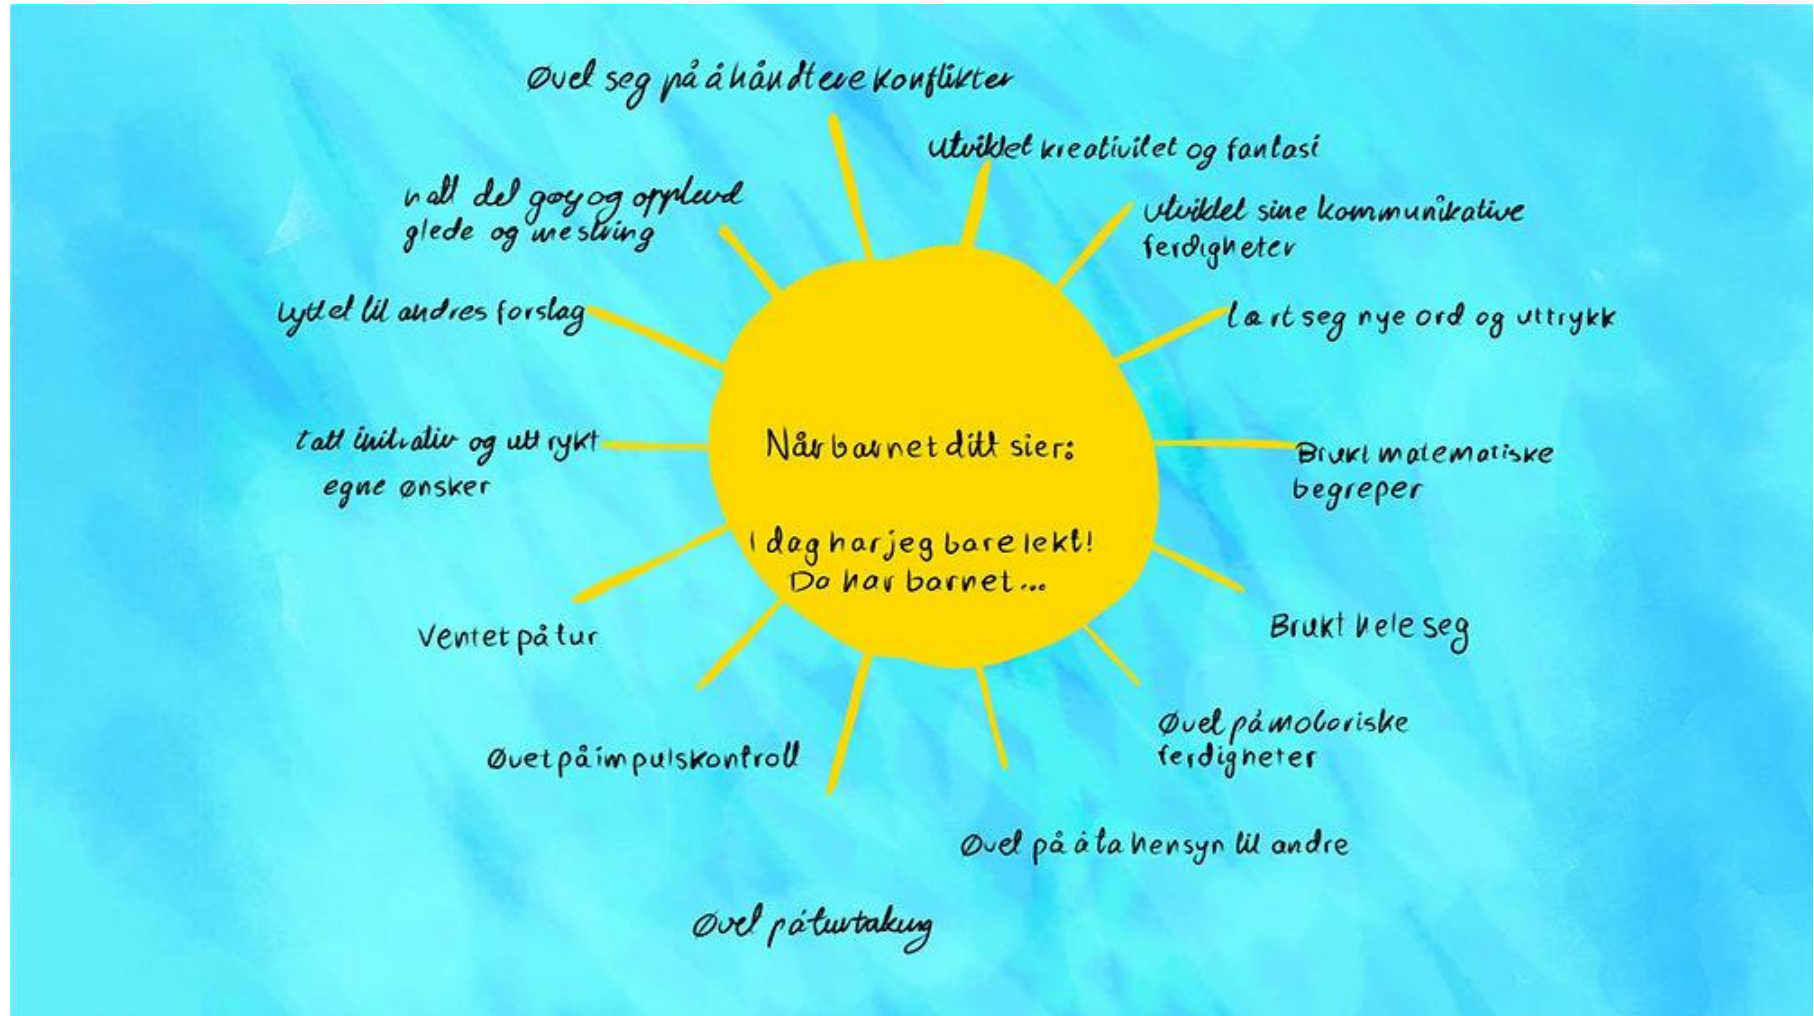 Når barnet ditt sier:
I dag har jeg bare lekt!
Da har barnet...
Øvet seg på å håndtere konflikter
Utviklet kreativitet og fantasi
Utviklet sine kommunikative
ferdigheter
Lært seg nye ord og uttrykk
Brukt matematiske
begreper
Brukt hele seg
Øvet på motoriske
ferdigheter
Øvet på å ta hensyn til andre
Øvet på turtaking
Øvet på impulskontroll
Ventet på tur
tatt initiativ og utt rykt
egne ønsker
Lyttet til andres forslag
hatt det gøy og opplevd
glede og mestring